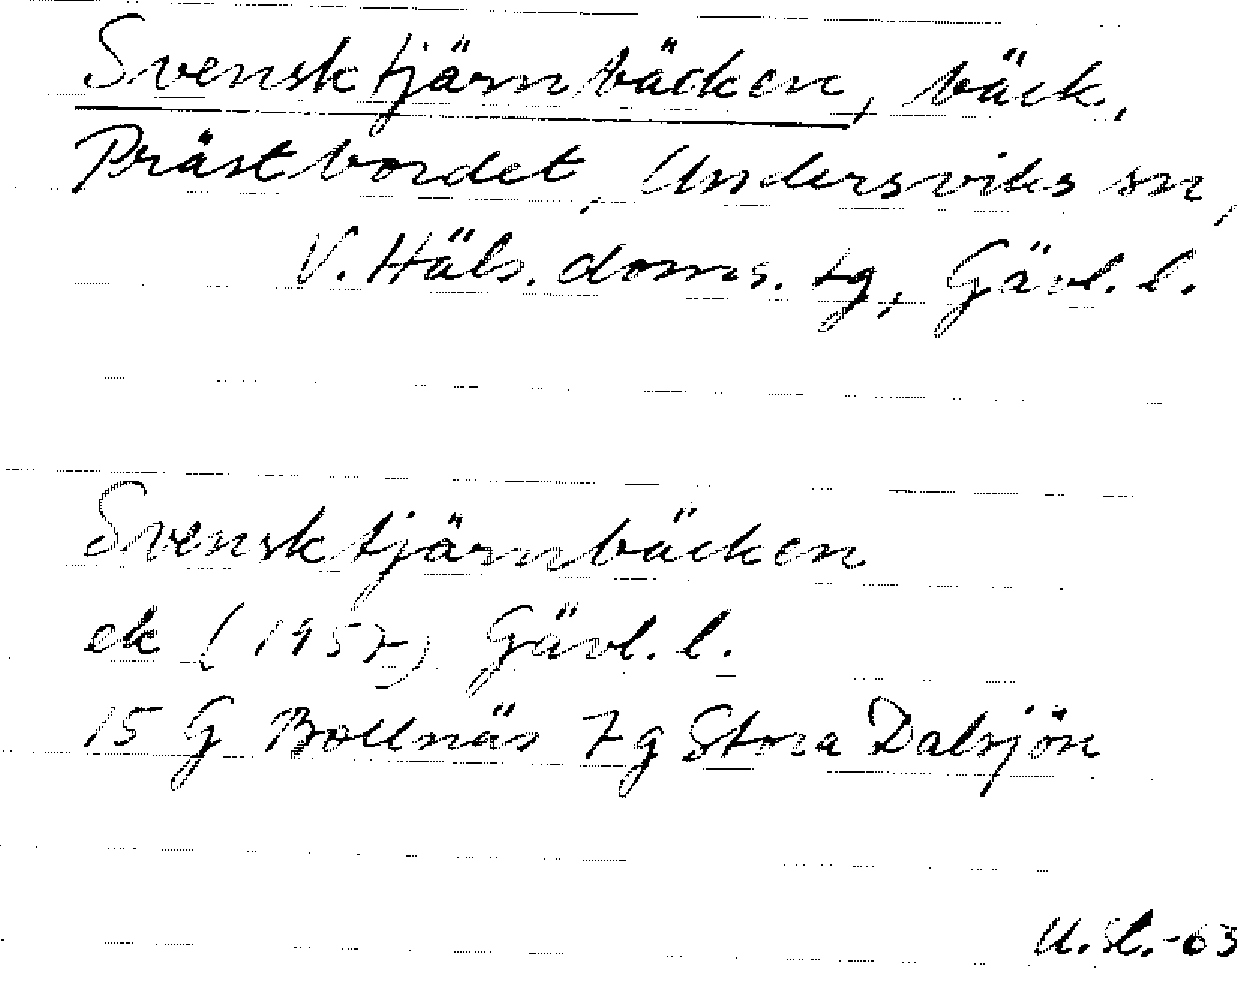 Svensktjärnbäcken, bäck,
Prästbordet, Undersviks sn,
V. Häls. doms. tg, Gävl. l.
Svensktjärnbäcken
ek (1957) Gävl. l.
15 G Bollnäs 7g Stora Dalsjön
U. St.-63